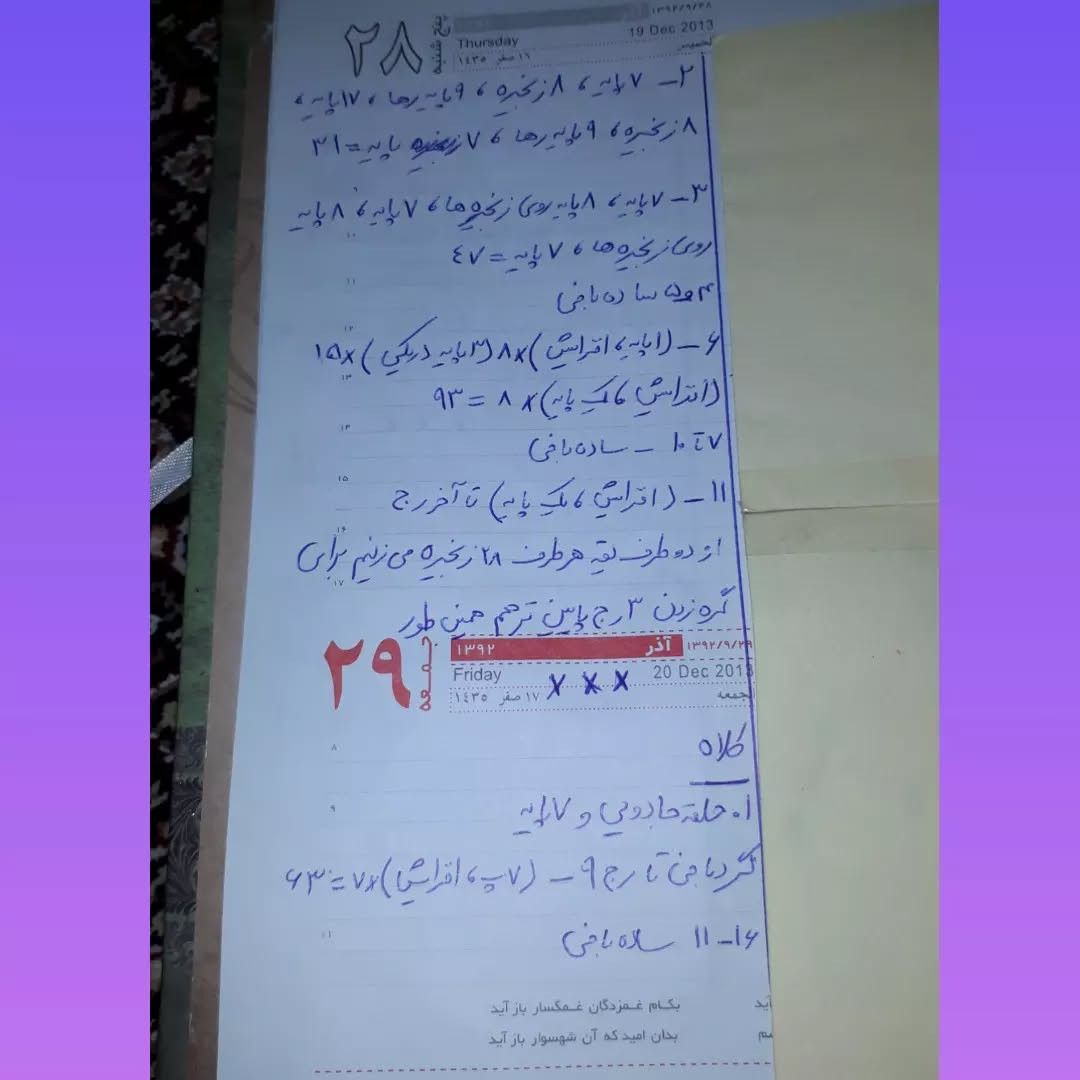 ۲۸ پنج شنبه ۱۳۹۲/۹/۲۸
Thursday 19 Dec 2013
۱۶ صفر ۱۴۳۵ الخمیس
۲- ۷ پایه، ۸ زنجیره، ۹ پایه رها، ۱۷ پایه،
۸ زنجیره، ۹ پایه رها، ۷ پایه = ۳۱
۳- ۷ پایه، ۸ پایه روی زنجیره ها، ۷ پایه، ۸ پایه
روی زنجیره ها، ۷ پایه = ۴۷
۴ و ۵ ساده بافی
۶- (۱ پایه، افزایش)×۸ (۳ پایه در یکی)×۱۵
(افزایش، یک پایه)×۸ = ۹۳
۷ تا ۱۰ - ساده بافی
۱۱- (افزایش، یک پایه) تا آخر رج
از دو طرف یقه هر طرف ۲۸ زنجیره می زنیم برای
گره زدن ۳ رج پایین تر هم همین طور
۲۹ جمعه ۱۳۹۲ آذر ۱۳۹۲/۹/۲۹
Friday 20 Dec 2013
۱۷ صفر ۱۴۳۵ الجمعه
× × ×
کلاه
۱. حلقه جادویی و ۷ پایه
گرد بافی تا رج ۹ - (۷پ، افزایش)×۷ = ۶۳
۱۱-۱۶ ساده بافی
بکـام غـمزدگان غـمگسار باز آید
بدان امید که آن شهسوار باز آید